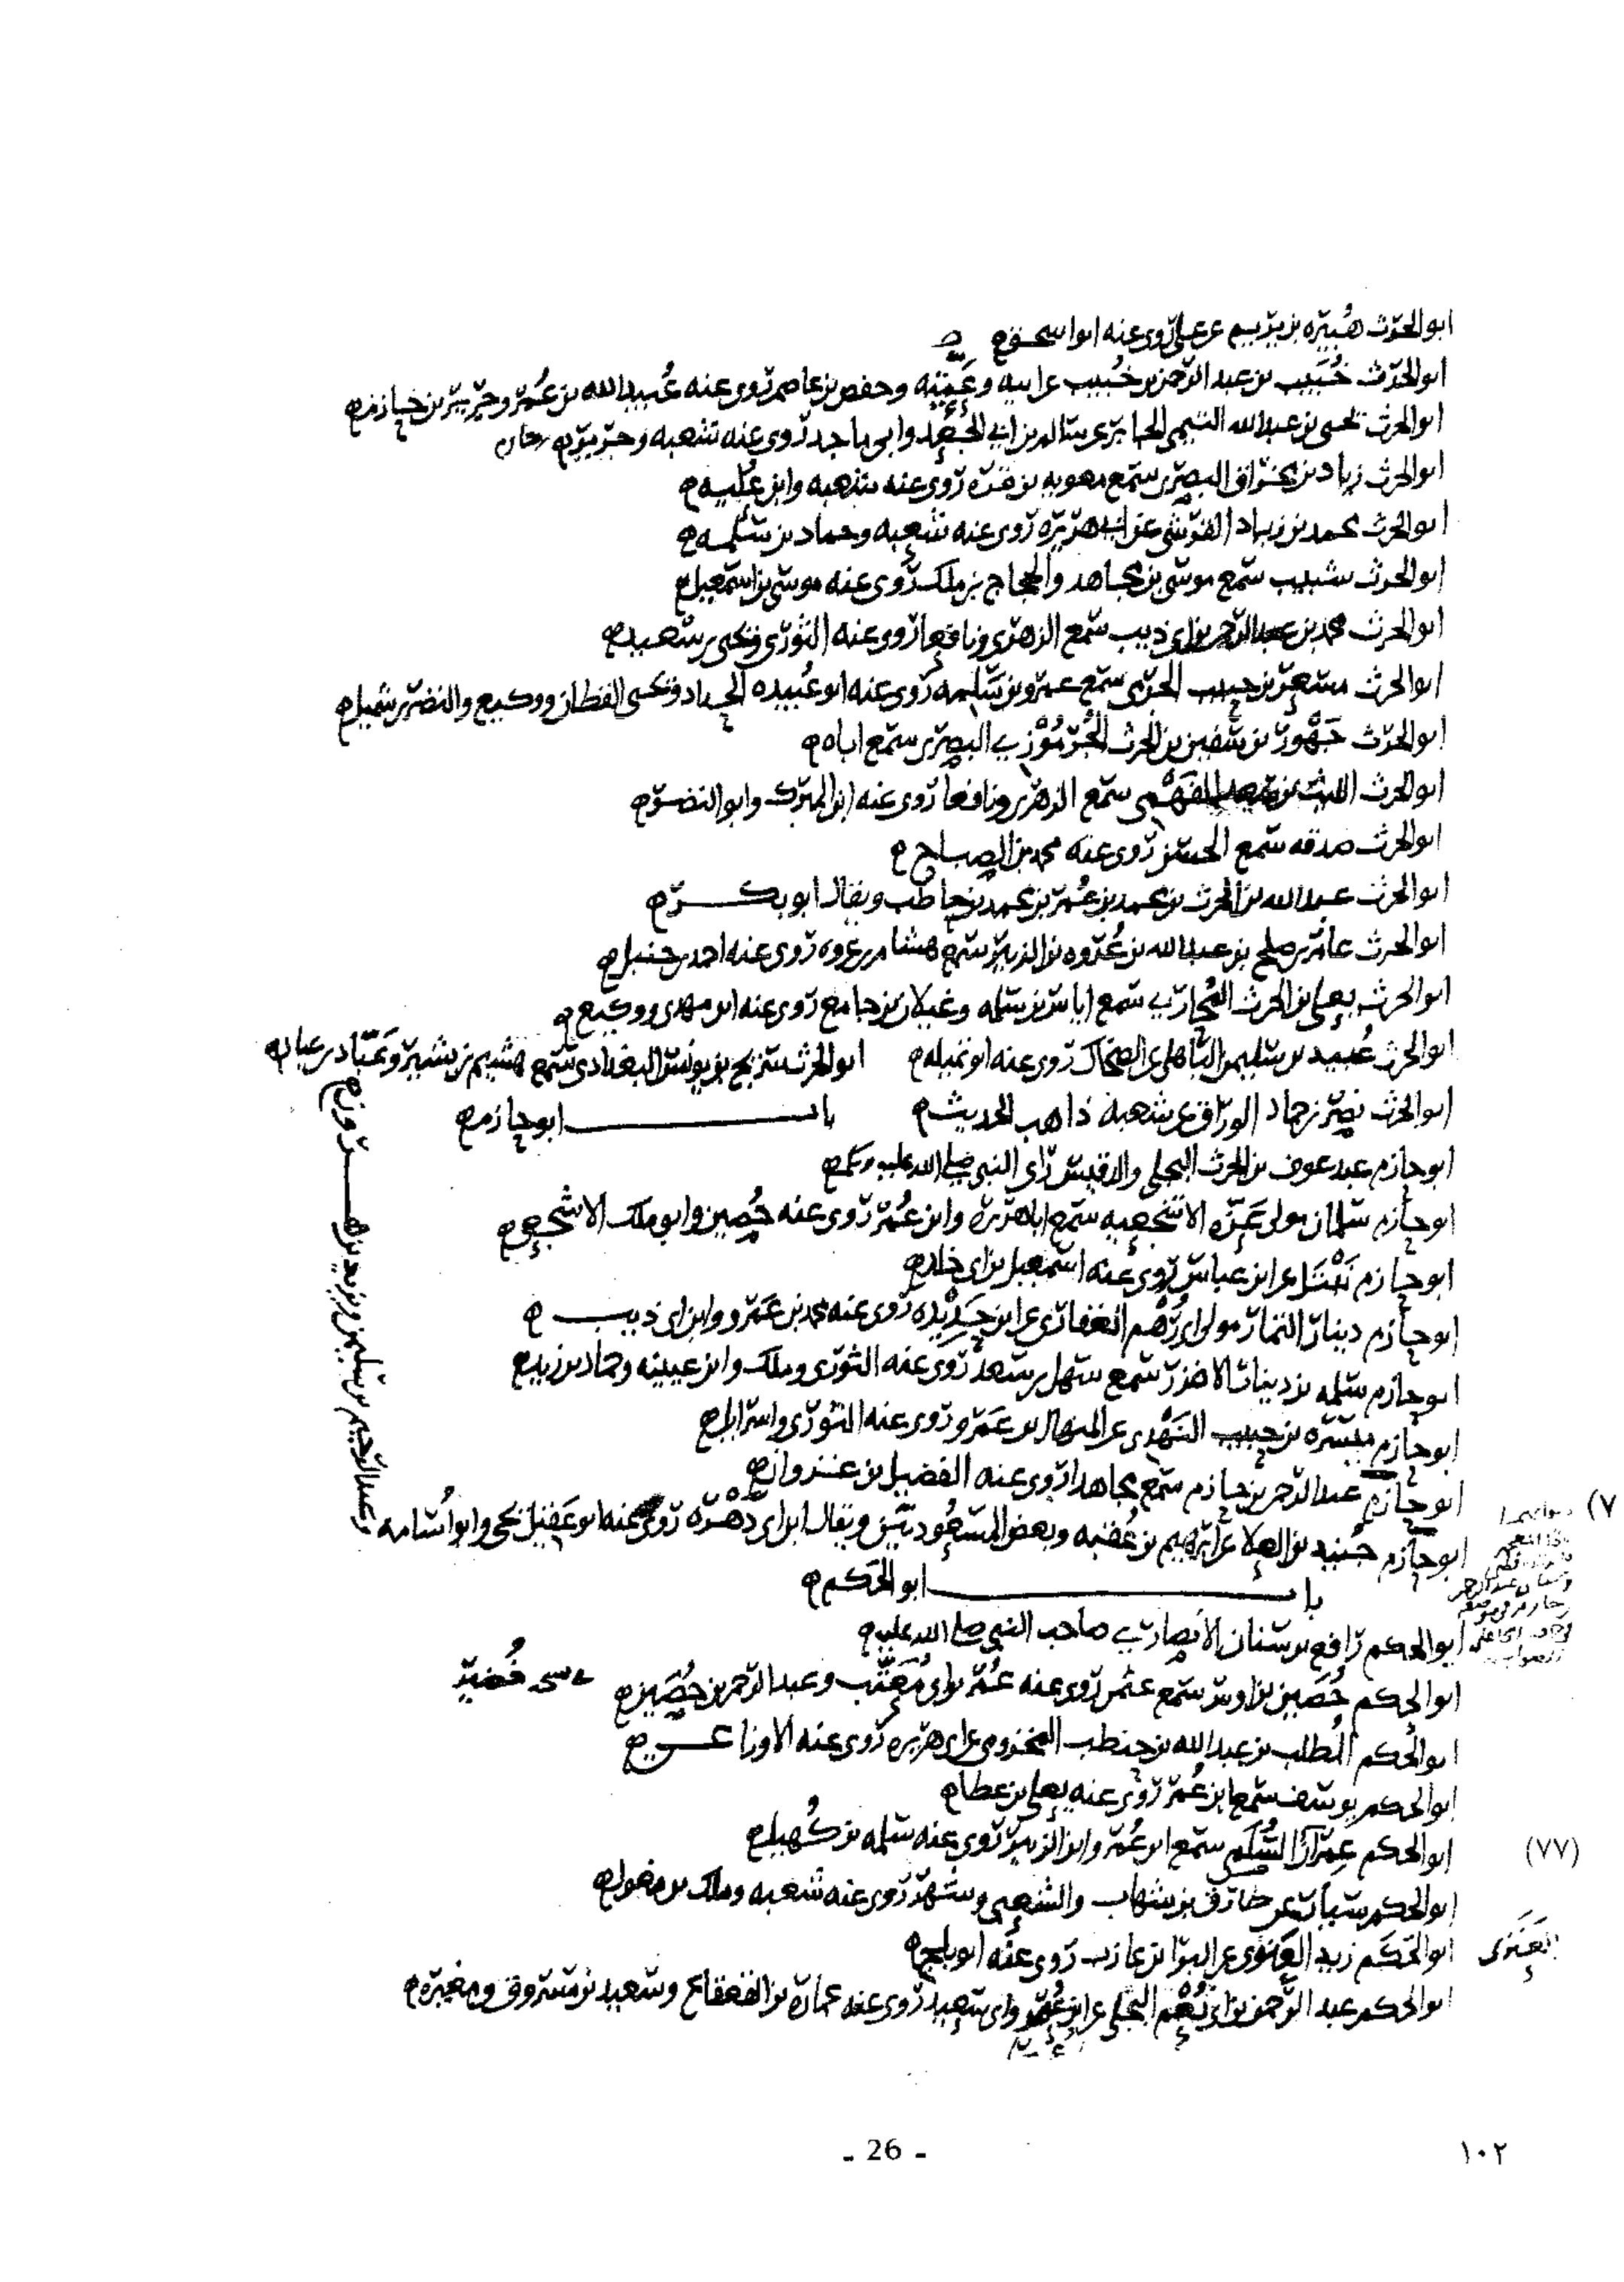 ابو الحرث هُبَيْره بن يريم عن علي روى عنه ابو اسحق
ابو الحرث خُبَيب بن عبد الرحمن بن خُبيب عن ابيه وعَمّته وحفص بن عاصم روى عنه عُبيد الله بن عُمَر وجرير بن حازم
ابو الحرث يحيى بن عبد الله التيمي الجابر عن سالم بن ابي الجَعْد وابي ماجد روى عنه شعبه وجرير
ابو الحرث زياد بن مخراق البصري سمع معويه بن قُرّه روى عنه شعبه وابن عُليه
ابو الحرث محمد بن زياد القرشي عن ابي هريره روى عنه شعبه وحماد بن سلمه
ابو الحرث شبيب سمع موسى بن مجاهد والحجاج بن ملك روى عنه موسى بن اسمعيل
ابو الحرث محمد بن عبد الرحمن بن ابي ذيب سمع الزهري ونافعا روى عنه الثوري ويحيى بن سعيد
ابو الحرث مسعر بن حبيب الجرمي سمع عمرو بن سَلِمه روى عنه ابو عُبيده الحداد ويحيى القطان ووكيع والنضر بن شميل
ابو الحرث جَهْوَر بن سفين بن الحرث الجُرْمُوْزي البصري سمع اباه
ابو الحرث الليث بن سعد الفَهْمي سمع الزهري ونافعا روى عنه ابن المبرك وابو النضر
ابو الحرث صدقه سمع الحسن روى عنه محمد بن الصباح
ابو الحرث عبد الله بن الحرث بن محمد بن عُمَر بن محمد بن حاطب ويقال ابو بكر
ابو الحرث عامر بن صلح بن عبد الله بن عُروه بن الزبير سمع هشام بن عروه روى عنه احمد بن حنبل
ابو الحرث يعلى بن الحرث المُحاربي سمع اياس بن سلمه وغيلان بن جامع روى عنه ابن مهدي ووكيع
ابو الحرث عُبيد بن سليمن الباهلي عن الضحاك روى عنه ابو تميله ابو الحرث سريج بن يونس البغدادي سمع هشيم بن بشير وعَبّاد بن عباد
ابو الحرث نصر بن حماد الوراق عن شعبة ذاهب الحديث باب ابو حازم
ابو حازم عبد عوف بن الحرث البجلي والد قيس راى النبي صلى الله عليه وسلم
ابو حازم سلمان مولى عَزّه الاشجعيه سمع ابا هريره وابن عُمَر روى عنه حُصين وابو ملك الاشجعي
ابو حازم نَبْتَل عن ابن عباس روى عنه اسمعيل بن ابي خلد
ابو حازم دينار التمار مولى ابي رُهْم الغفاري عن ابن حَدِيْده روى عنه محمد بن عَمرو وابن ابي ذيب
ابو حازم سلمه بن دينار الاعرج سمع سهل بن سعد روى عنه الثوري وملك وابن عيينه وحماد بن زيد
ابو حازم ميسره بن حبيب النَهْدي عن المنهال بن عَمرو روى عنه الثوري واسرايل
ابو حازم عبد الرحمن بن حازم سمع مجاهدا روى عنه الفضيل بن غزوان
ابو حازم جُنيد بن العلا عن ابرهيم بن عُقبه وبعض المسعوديين ويقال ابن ابي دَهْرَه روى عنه ابو عَقيل يحيى وابو اُسَامه
وعبد الرحيم بن سليمن ويزيد بن هـرون
باب ابو الحَكَم
ابو الحكم رافع بن سنان الانصاري صاحب النبي صلى الله عليه
ابو الحكم حُصَين بن اوس سمع عثمن روى عنه عُمَر بن ابي مُعَتِّب وعبد الرحمن بن حُصَين
ابو الحكم المُطلب بن عبد الله بن حنطب المخزومي عن ابي هريره روى عنه الاوزاعي
ابو الحكم يوسف سمع ابن عُمَر روى عنه يعلى بن عطا
ابو الحكم عِمْرَان السُّلمي سمع ابن عُمَر وابن الزبير روى عنه سلمه بن كُهيل
(٧٧)
ابو الحكم سيار عن طارق بن شهاب والشعبي وشهر روى عنه شعبه وملك بن مغول
ابو الحَكَم زيد العَنَزي عن البرا بن عازب روى عنه ابو بلج
ابو الحكم عبد الرحمن بن ابي نُعْم البجلي عن ابن عُمَر وابي سعيد روى عنه عماره بن القعقاع وسعيد بن مسروق ومغيره
١٠٢
- 26 -